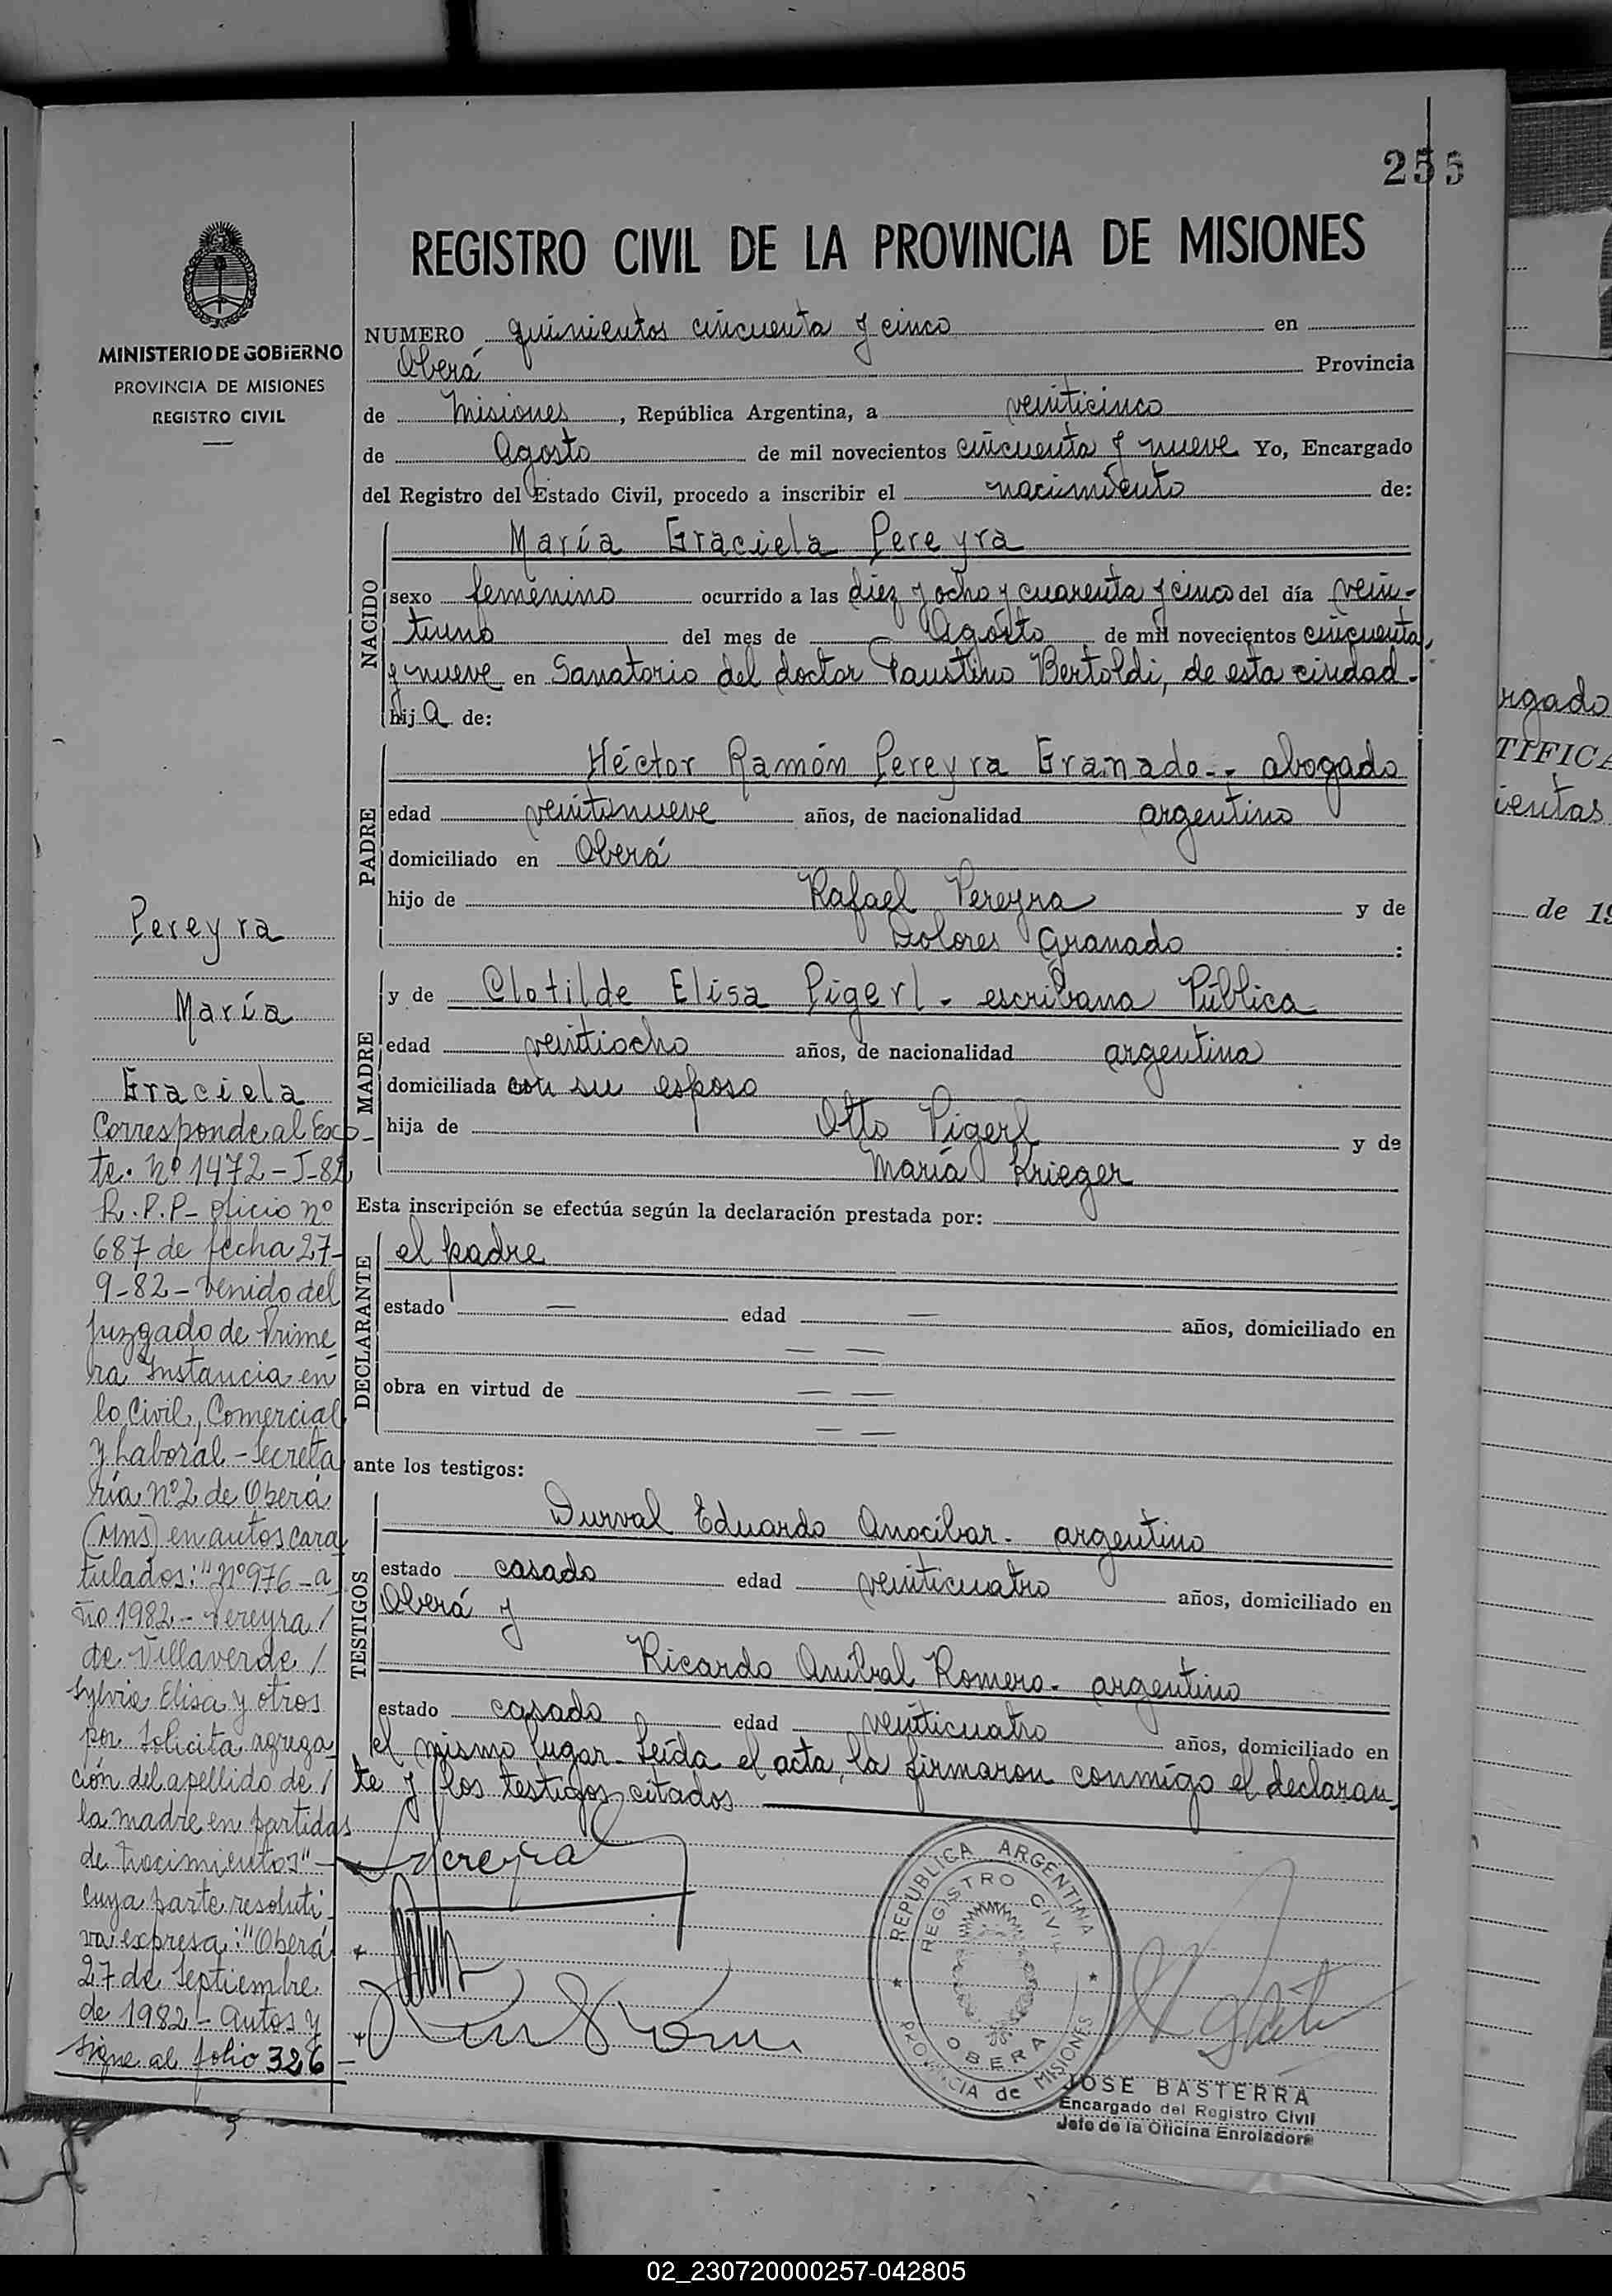 255
REGISTRO CIVIL DE LA PROVINCIA DE MISIONES
MINISTERIO DE GOBIERNO
PROVINCIA DE MISIONES
REGISTRO CIVIL
NUMERO quinientos cincuenta y cinco en
Oberá Provincia
de Misiones, República Argentina, a veinticinco
de Agosto de mil novecientos cincuenta y nueve Yo, Encargado
del Registro del Estado Civil, procedo a inscribir el nacimiento de:
NACIDO
María Graciela Pereyra
sexo femenino ocurrido a las diez y ocho y cuarenta y cinco del día vein-
tiuno del mes de Agosto de mil novecientos cincuenta
y nueve en Sanatorio del doctor Faustino Bertoldi, de esta ciudad.
hija de:
PADRE
Héctor Ramón Pereyra Granado.- abogado
edad veintinueve años, de nacionalidad argentino
domiciliado en Oberá
hijo de Rafael Pereyra y de
Dolores Granado :
MADRE
y de Clotilde Elisa Pigerl - escribana Pública
edad veintiocho años, de nacionalidad argentina
domiciliada con su esposo
hija de Otto Pigerl y de
María Krieger
Esta inscripción se efectúa según la declaración prestada por:
DECLARANTE
el padre
estado — edad — años, domiciliado en
— —
obra en virtud de — —
— —
ante los testigos:
TESTIGOS
Durval Eduardo Anocíbar - argentino
estado casado edad veinticuatro años, domiciliado en
Oberá y
Ricardo Aníbal Romero - argentino
estado casado edad veinticuatro años, domiciliado en
el mismo lugar - Leída el acta, la firmaron conmigo el declaran-
te y los testigos citados
Pereyra
REPUBLICA ARGENTINA
REGISTRO CIVIL
OBERA
PROVINCIA de MISIONES
JOSE BASTERRA
Encargado del Registro Civil
Jefe de la Oficina Enroladora
Pereyra
María
Graciela
Corresponde al Exp-
te. Nº 1472-J-82
R.P.P- oficio nº
687 de fecha 27-
9-82 - venido del
Juzgado de Prime
ra Instancia en
lo Civil, Comercial
y Laboral - Secreta
ría nº2 de Oberá
(Mns) en autos cara
tulados: "nº976-a
ño 1982- Pereyra/
de Villaverde/
Sylvia Elisa y otros
por Solicita agrega
ción del apellido de/
la madre en partidas
de nacimientos" -
cuya parte resoluti
va expresa: "Oberá
27 de Septiembre
de 1982 - Autos y
Sigue al folio 326 -
rgado
TIFICA
ientas
de 19
02_230720000257-042805